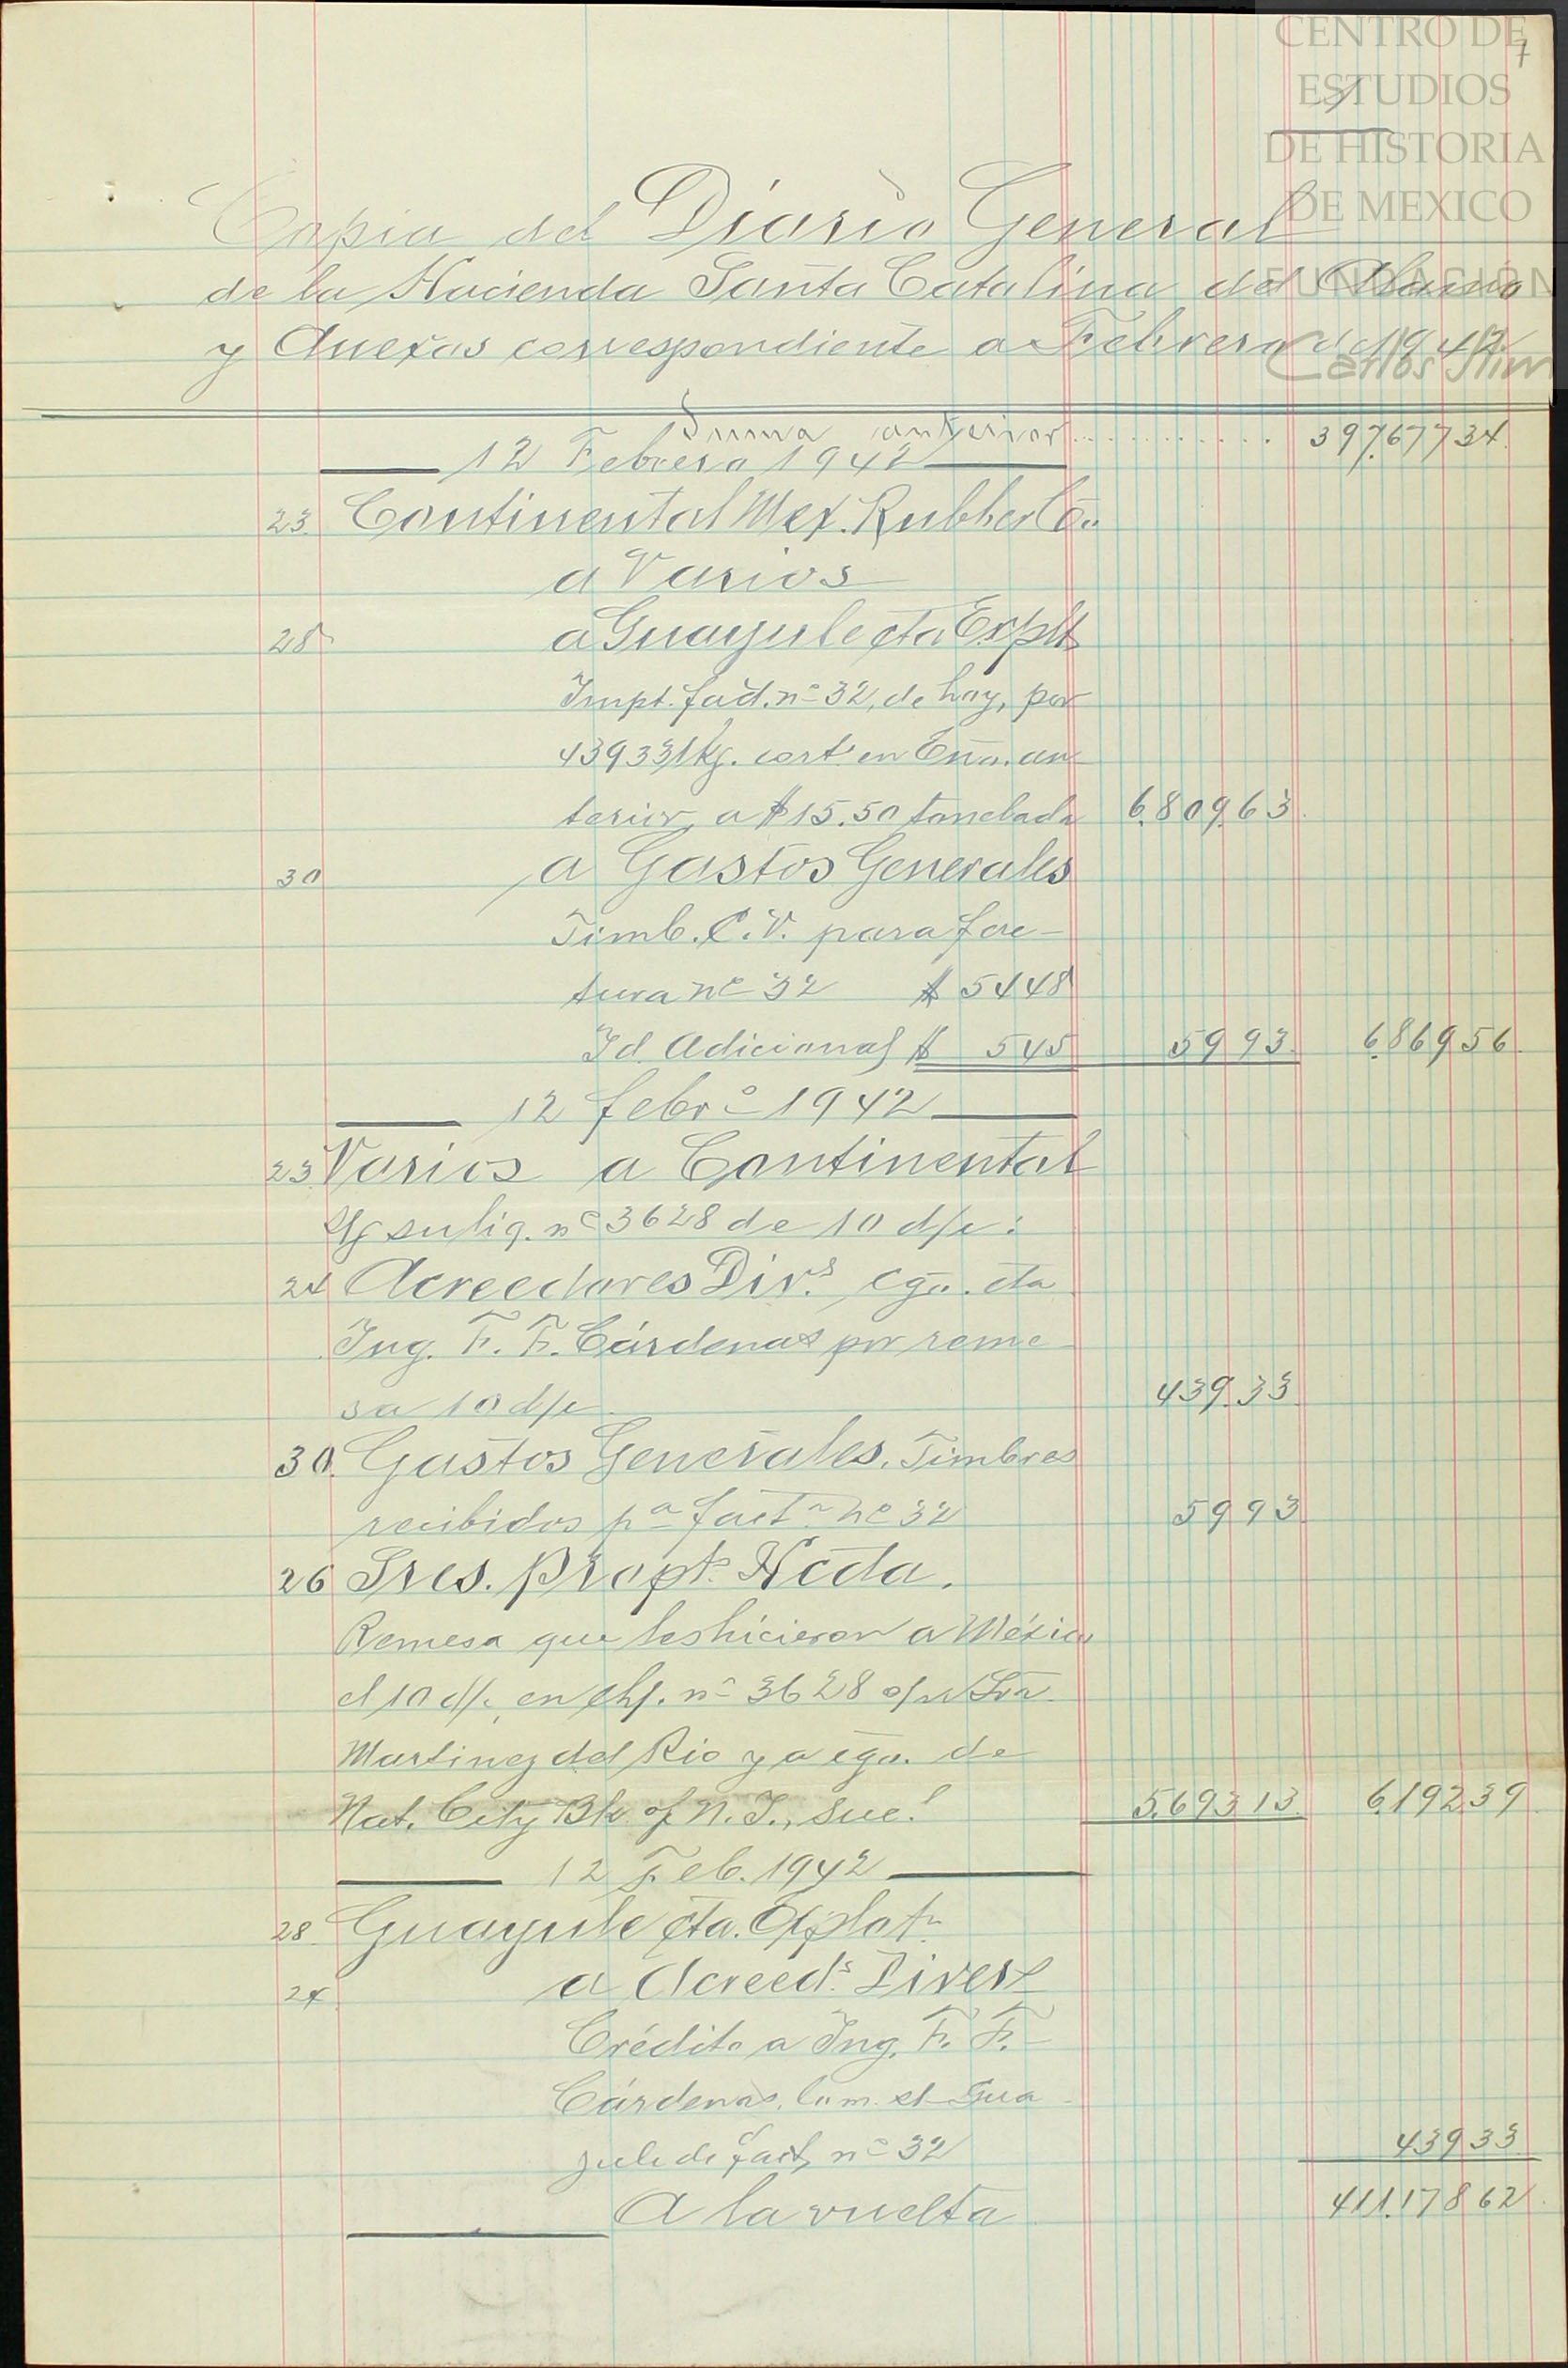 CENTRO DE
ESTUDIOS
DE HISTORIA
DE MEXICO
FUNDACIÓN
Carlos Slim
7
Copia del Diario General
de la Hacienda Santa Catalina del Alamo
y Anexas correspondiente a Febrero de 1942
Suma anterior ........... 397,677 34
12 Febrero 1942
23. Continental Mex. Rubber Co.
a Varios
28 a Guayule cta Explt.
Impt. fact. nº 32, de hoy, por
439331 kg. cort. en Ena. an-
terior, a $15.50 tonelada 6,809 63
30 a Gastos Generales
Timb. C.V. para fac-
tura nº 32 $ 54 48
Id. Adicional $ 5 45 59 93 6,869 56
12 febrº 1942
23 Varios a Continental
S/ su liq. nº 3628 de 10 d/e:
24 Acreedores Divs. cgo. cta
Ing. F. F. Cárdenas por reme-
sa 10 d/e 439.33
30. Gastos Generales. Timbres
recibidos pª factª nº 32 59 93
26 Sres. Propts. Hcda.
Remesa que les hicieron a México
el 10 d/e, en ch/. nº 3628 o/
Martinez del Rio y a cgo. de
Nat. City Bk of N.Y., Suc. 5,693 13 6,192 39
12 Feb. 1942
28 Guayule cta. Explotn.
24 a Acreeds. Divers
Crédito a Ing. F. F.
Cárdenas, com. s/ Gua-
yule de fact, nº 32 439 33
A la vuelta 411,178 62